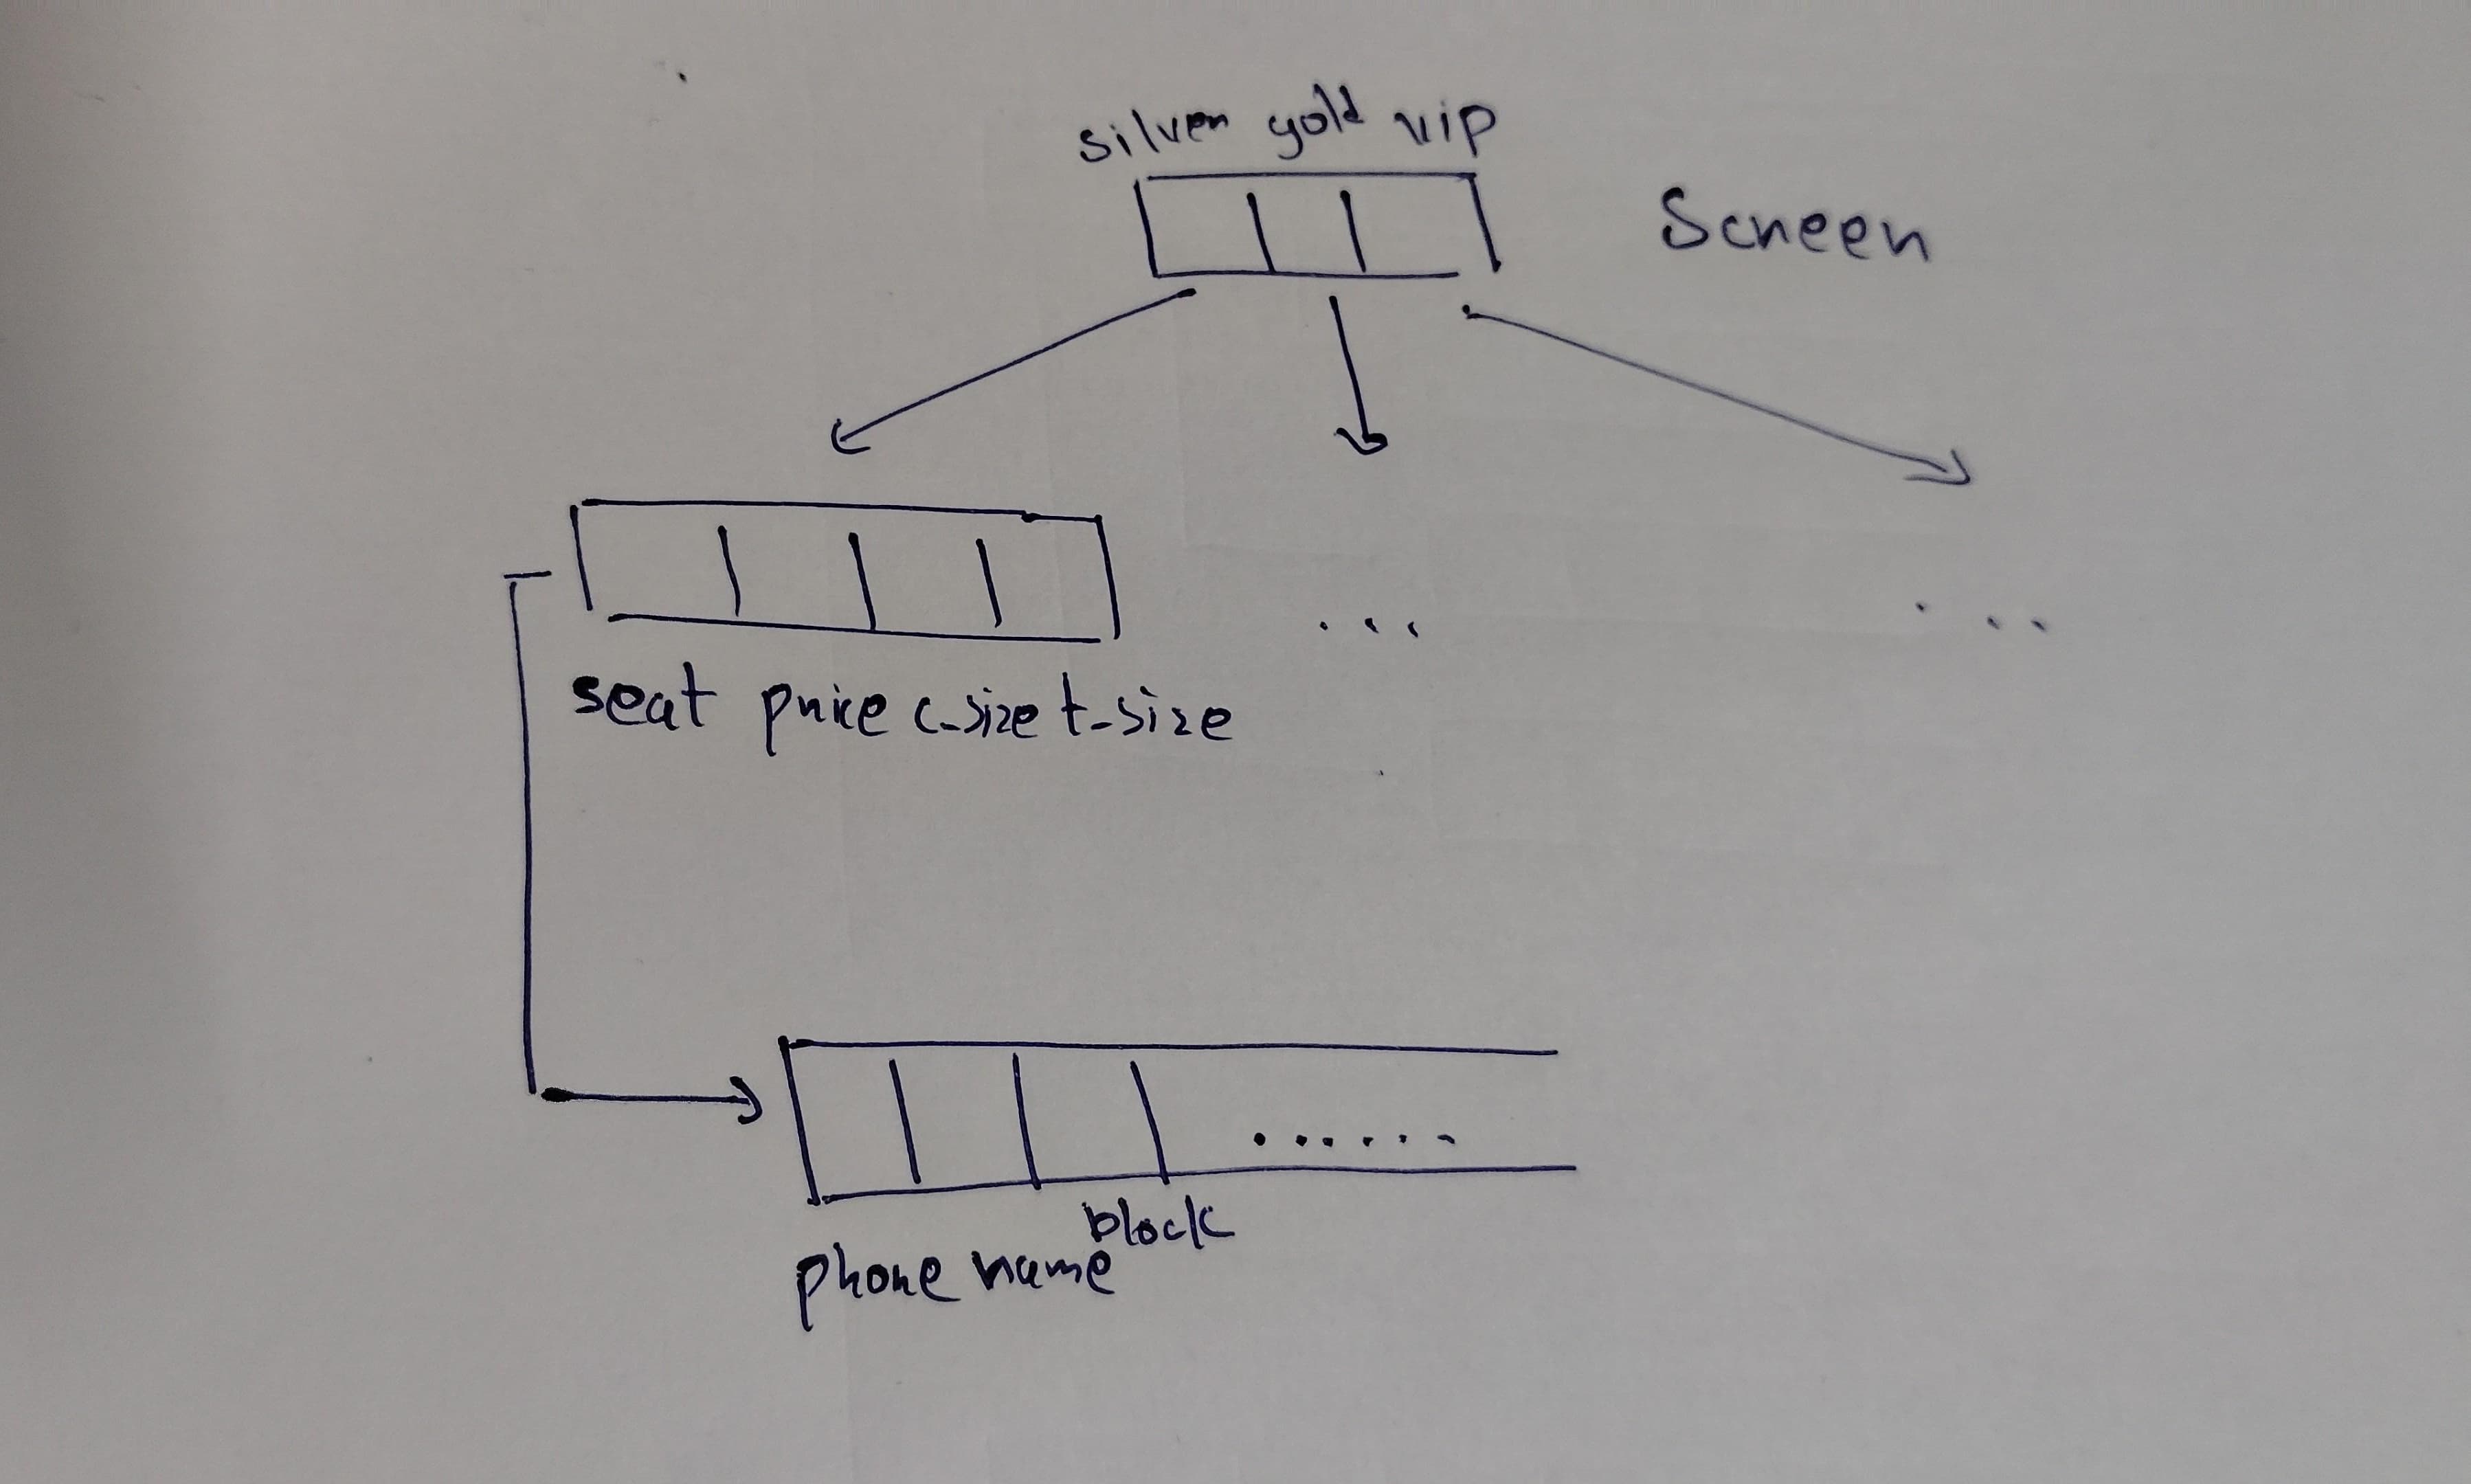 silver gold vip
Screen
seat price c_size t_size
block
phone name